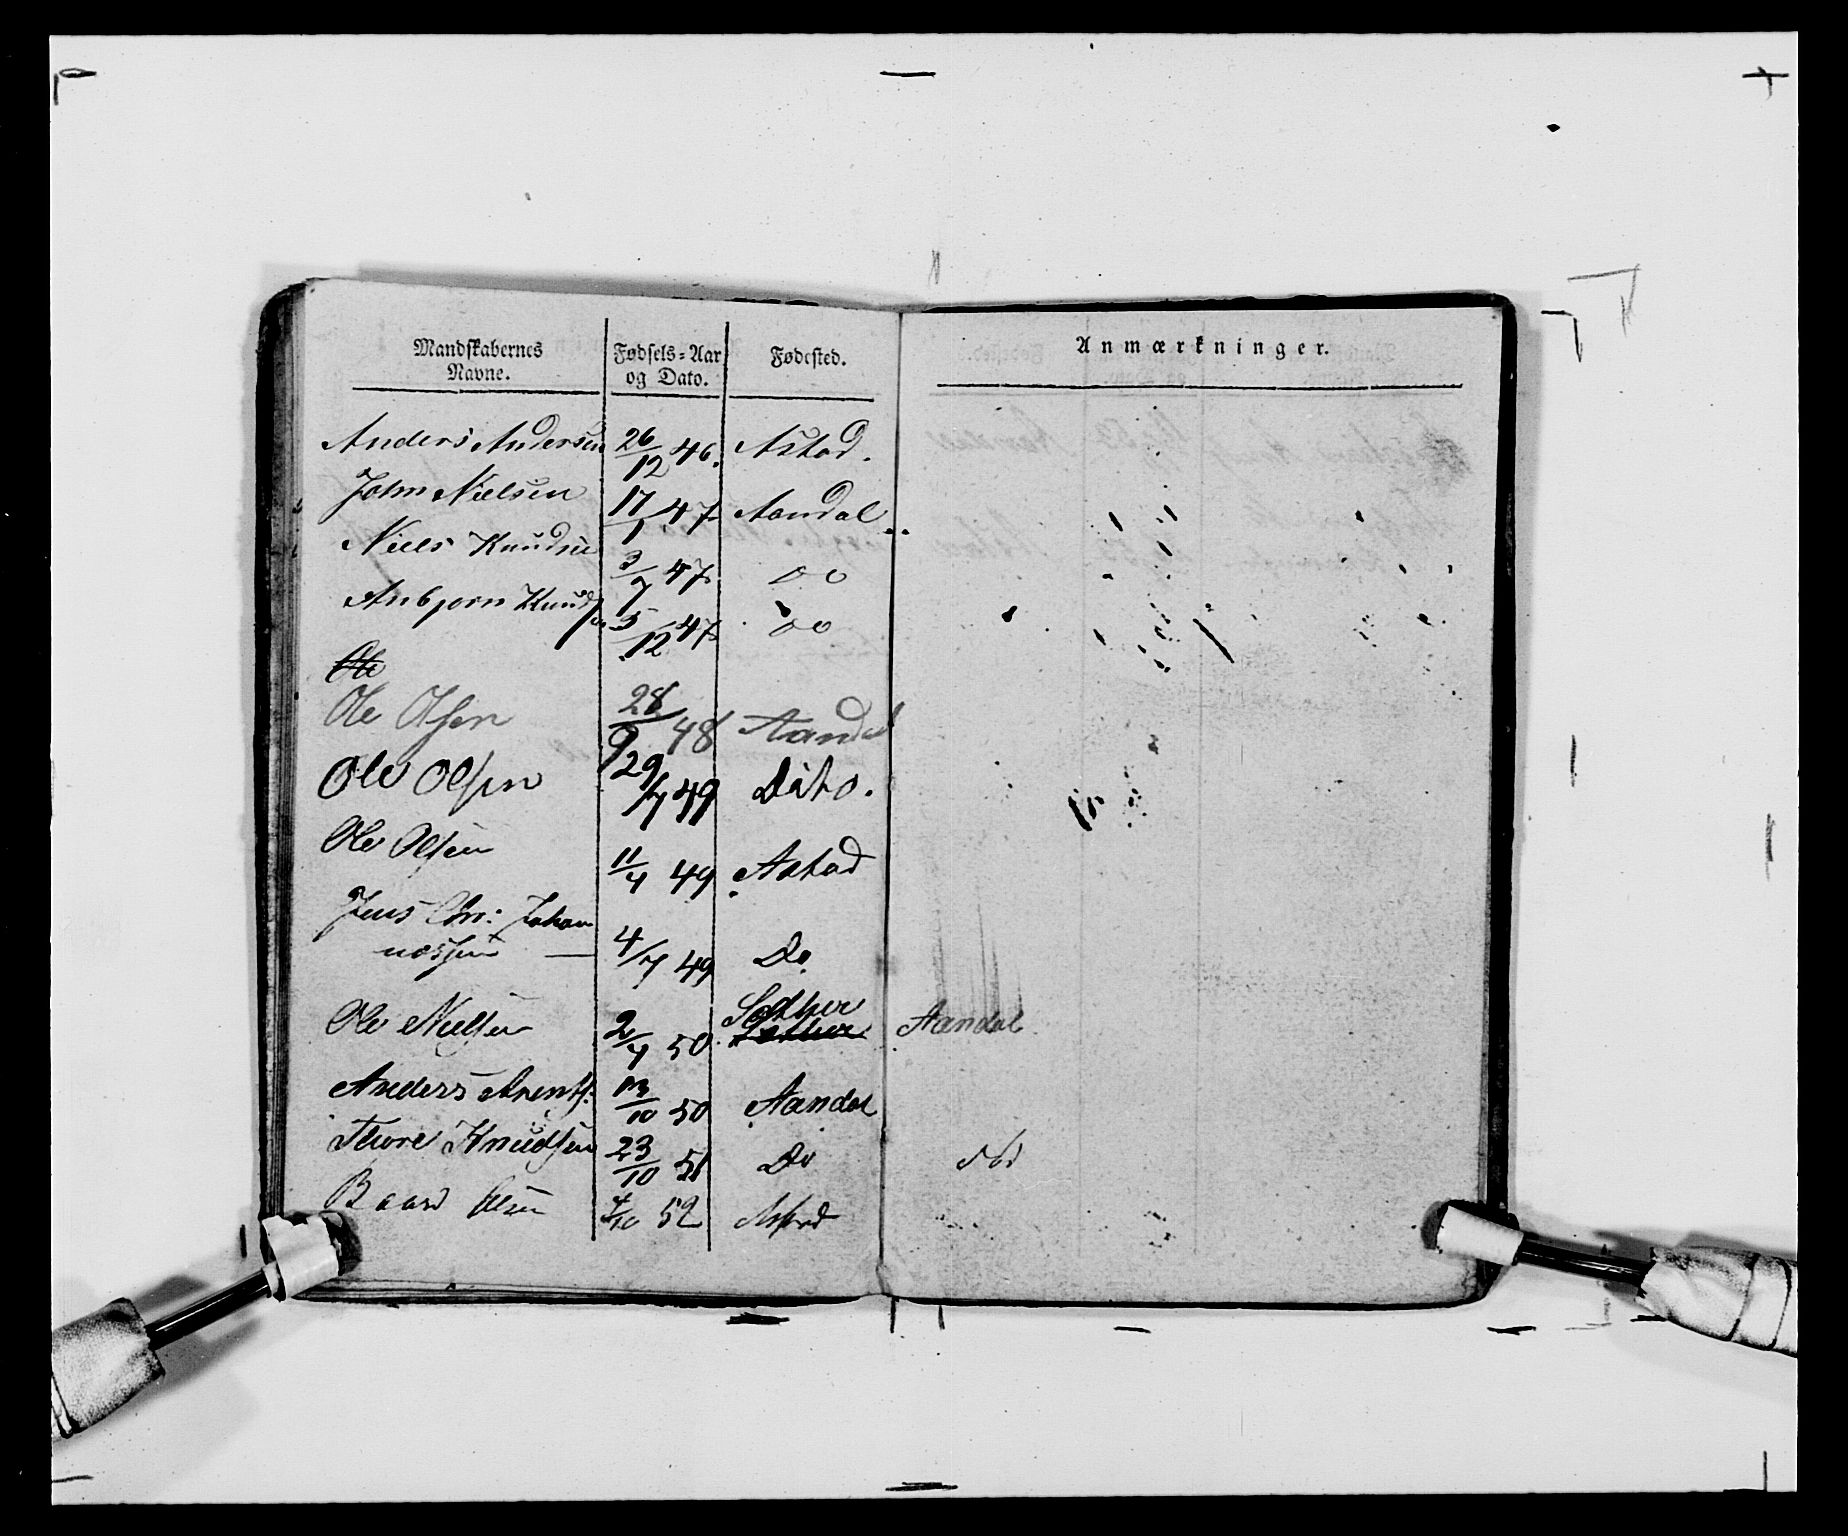 Mandskabernes Navne. Fødsels-Aar og Dato. Fødested. Anmærkninger.
Anders Andersen 26/12 46. Astad.
John Nielsen 17/1 47 Aandal
Niels Knudsen 3/7 47 Do
Anbjørn Knuds 5/12 47 Do
Ole
Ole Olsen 28/9 48 Aandal
Ole Olsen 29/7 49 Dito.
Ole Olsen 11/4 49 Astad
Jens Chr: Johan
nessen — 4/7 49 Do
Ole Nielsen 2/4 50 Aandal
Anders Arents: 13/10 50 Aandal
Thore Knudsen 23/10 51 Do
Baard Olsen 4/10 52 Astad